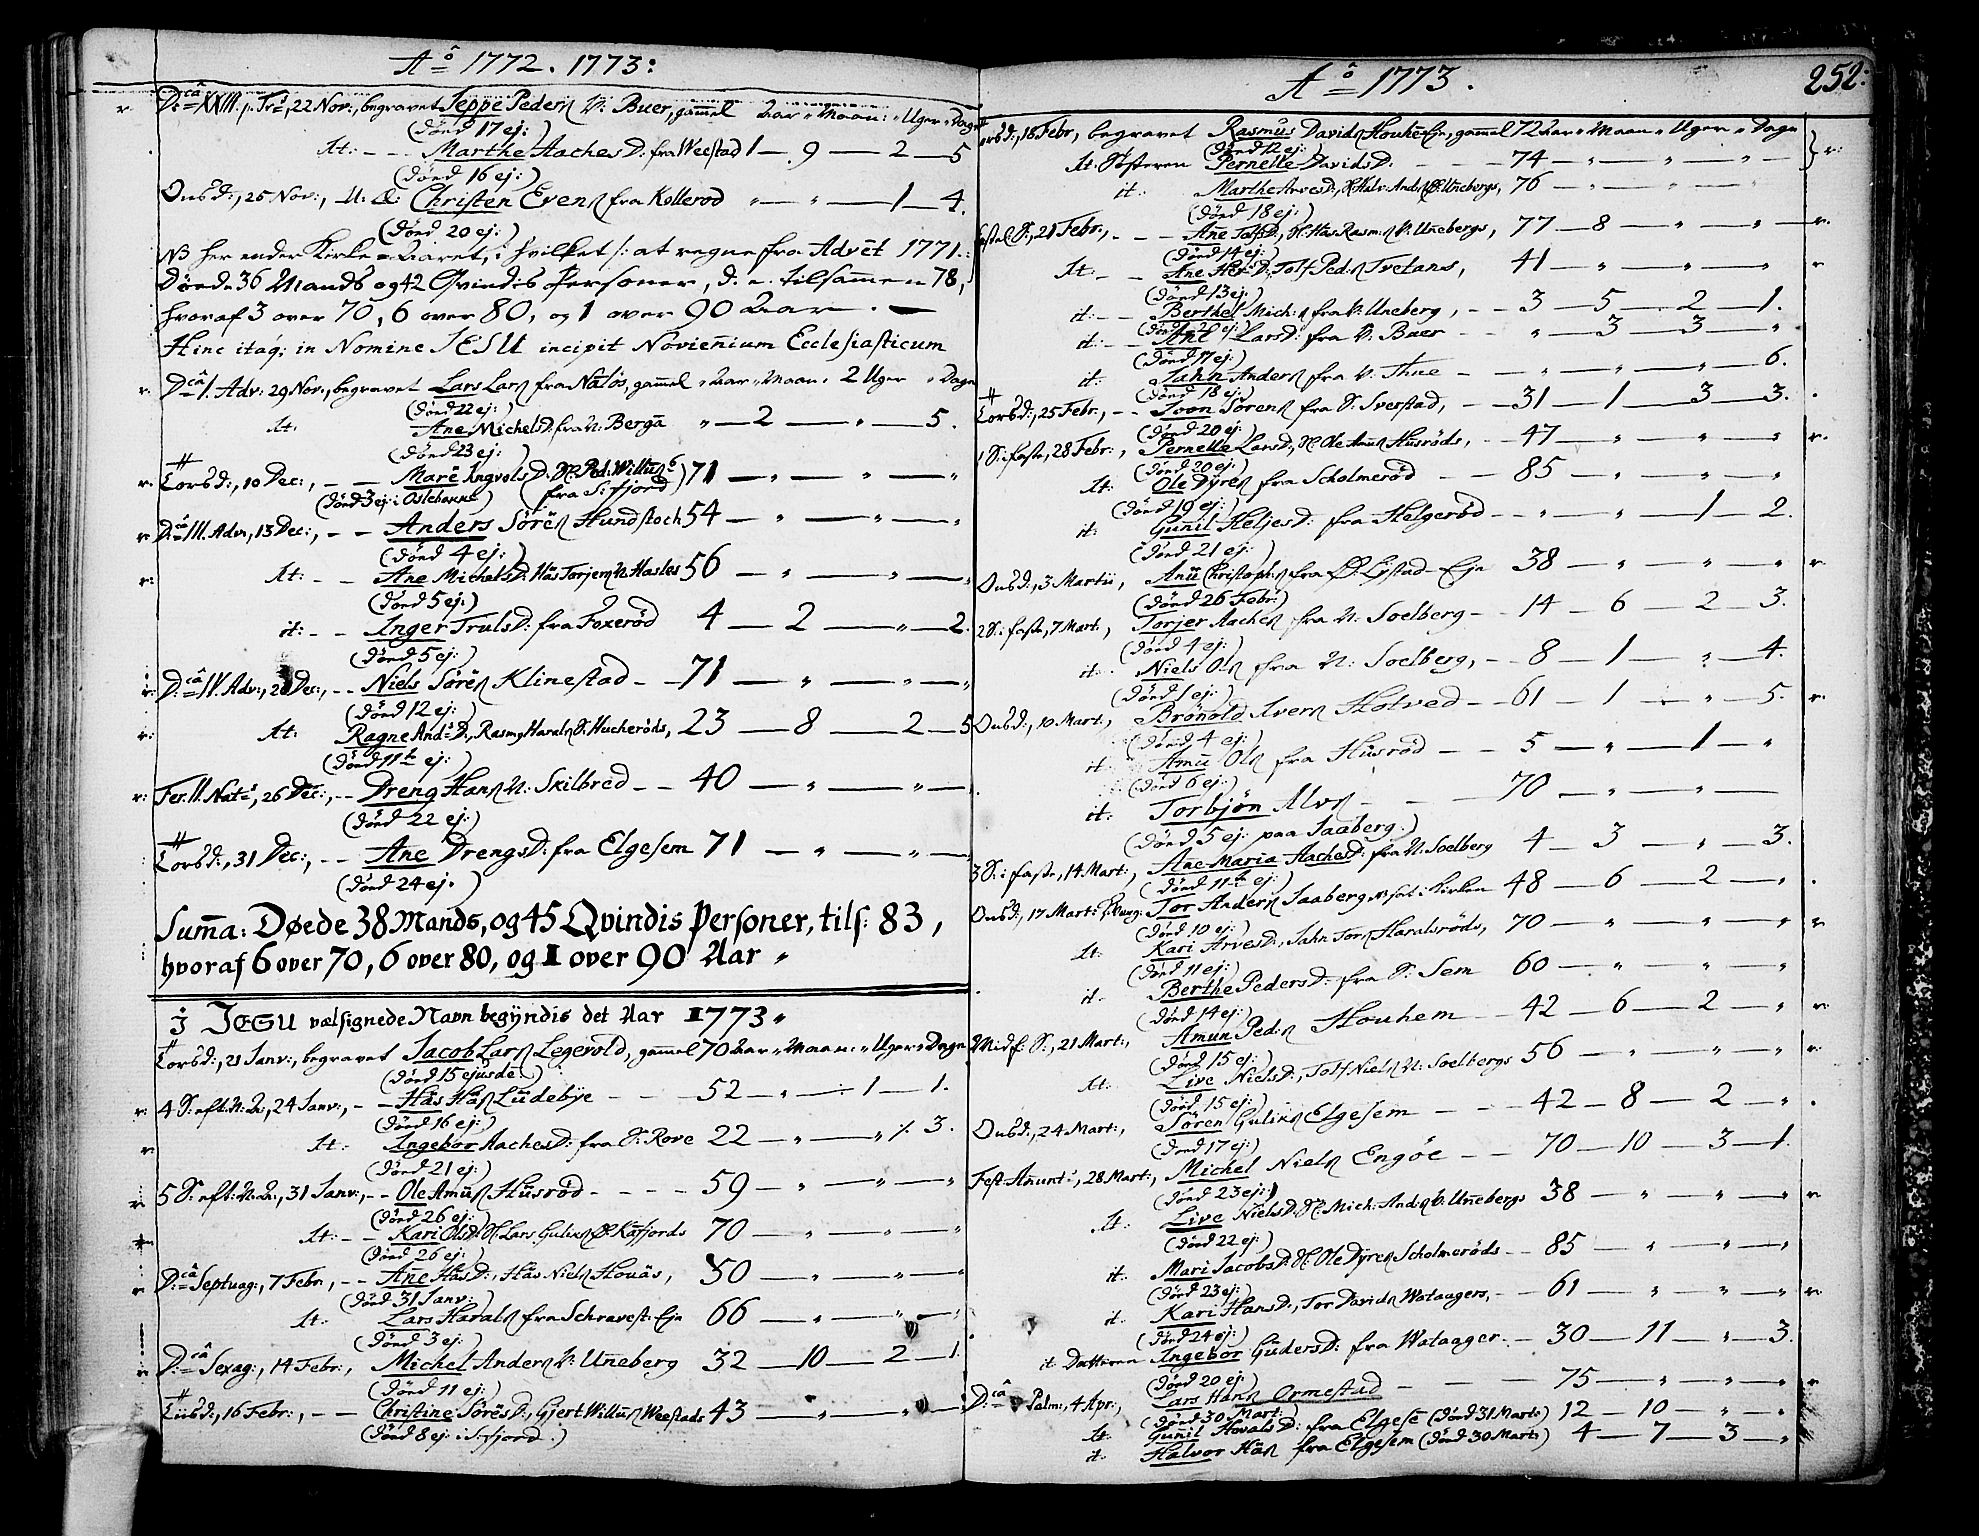 Aô 1772. 1773:
Dcâ XXIII. p. Tr:, 22 Nov:, begravet Jeppe Peders. V: Buer, gammel Aar " Maan: " Uger " Dage
(Død 17 ej:)
It: - - Marthe AachesD: fra Weestad 1 - 9 - 2 - 5
(Død 16 ej:)
OnsD:, 25 Nov:, Christen Evens. fra Kollerød " - " - 1 - 4.
(Død 20 ej:)
NB her ender Kirke-Aaret, i hvilket /: at regne fra Advēt 1771.:
Døede 36 Mands og 42 Qvindis Personer, d. e. tilsammen 78,
hvoraf 3 over 70, 6 over 80, og 1 over 90 Aar. -
Hinc itaq; in Nomine JESU incipit Novieñium Ecclesiasticum
Dcâ I. Adv: 29 Nov:, begravet Lars Lars. fra Natløs, gammel " Aar " Maan: 2 Uger " Dage
(Død 22 ej:)
It: Ane MichelsD: fra N: Bergā " - 2 - " - 5.
(Død 23 ej:)
TorsD:, 10 Dec:, - - Marē IngvolsD: fra S:fjord) 71 - " - " - "
(Død 3 ej: i Oslebakke)
Dcâ III. Adv, 13 Dec:, - - Anders Sörēs. Hundstoch 54 - " - " - "
(Død 4 ej:)
It: - - Ane MichelsD: Hās Torjers. N: Hasles 56 - " - " - "
(Død 5 ej:)
it: - - Inger TrulsD: fra Foxerød 4 - 2 - " - 2.
(Død 5 ej:)
Dcâ IV. Adv:, 20 Dec:, - - Niels Sörēs. Klinestad - - 71 - " - " - "
(Død 12 ej:)
It: Ragne And:D:, Rasm: Harals. S: Hucherøds, 23 - 8 - 2 - 5
(Død 11te ej:)
Fer. II. Nat:, 26 Dec:, - - Dreng Hans. N: Skilbred - - 40 - " - " - "
(Død 22 ej:)
TorsD:, 31 Dec:, - - Ane DrengsD: fra Elgesem 71 - " - " - "
(Død 24 ej.)
Sum̄a: Døede 38 Mands, og 45 Qvindis Personer, tils: 83,
hvoraf 6 over 70, 6 over 80, og 1 over 90 Aar "
j JESU velsignede Navn begyndis det Aar 1773 "
TorsD:, 21 Janv:, begravet Jacob Lars. Legevold, gammel 70 Aar " Maan: " Uger " Dage
(Død 15 ejusdē.)
4 S: eft: N: A:, 24 Janv:, - - Hās Hās. Lüdebye - - - 52 - " - 1 - 1.
(Død 16 ej:)
It: Ingebor AachesD: fra S: Rove 22 - " - " 3.
(Død 21 ej:)
5 S: eft: N: A:, 31 Janv:, - - Ole Amūs. Hüsrød - - - - 59 - " - " - "
(Død 26 ej:)
It: - - Kari OlsD: H: Lars Gulix. Ø: Kafjords 70 - " - " - "
(Død 26 ej:)
Dcâ Septuag:, 7 Febr:, - - Añe HāsD:, Hās Niels. Houās, 50 - " - " - "
(Død 31 Janv:)
It: Lars Harals. fra Schravest: Eje 66 - " - " - "
(Død 3 ej:)
Dcâ Sexag:, 14 Febr:, Michel Anders. V: Uñeberg 32 - 10 - 2 - 1
(Død 11 ej:)
TiisD:, 16 Febr:, - - Christine SörēsD:, Gjert Willūs. Weestads 43 - " - " - "
(Død 8 ej: i S:fjord.)
Aô 1773.
252:
TorsD:, 18 Febr, begravet Rasmus Davids. Houke Eje, gammel 72 Aar " Maan " Uger " Dage
(Død 12 ej:)
It. Søsteren Pernelle DavidsD: - - - 74 - " - " - "
it. Marthe ArvesD:, H: Halv: And: Ø: Uñebergs, 76 - " - " - "
(Død 18 ej:)
Fastel: S:, 21 Febr:, - - - Añe TolfsD:, H: Hās Rasm: V: Uñebergs, 77 - 8 - " - "
(Død 14 ej:)
It: - - Ane Her:D:, Tolf Ped: Tvetans, 41 - " - " - "
(Død 13 ej:)
it: - - Berthel Mich:s. fra V: Uneberg, - 3 - 5 - 2 - 1.
(Død 20 ej:)
it: - - LarsD: fra V: Buer - - " - 3 - 3 - "
(Død 17 ej:)
it: Jahn Anders. fra V: Thue - - " - " - " - 6.
(Død 18 ej:)
TorsD:, 25 Febr:, - - Joon Sörens. fra S: Sverstad, - - 31 - 1 - 3 - 3.
(Død 20 ej:)
1 S: i faste, 28 Febr:, Pernelle LarsD:, H: Ole Amūs. Hüsrøds, - 47 - " - " - "
(Død 20 ej:)
It: Ole Dyres. fra Scholmerød - - 85 - " - " - "
(Død 19 ej:)
it: Guñil HeljesD: fra Helgerød - - " - " - 1 - 2.
(Død 21 ej:)
OnsD:, 3 Martii, Anū Christophs. fra Ø: Lystad Eje 38 - " - " - "
(Død 26 Febr:)
2 S: i faste, 7 Mart:, Torjer Aaches. fra N: Soelberg - - 14 - 6 - 2 - 3.
(Død 4 ej:)
it. Niels Ols. fra N: Soelberg, - 8 - 1 - " - 4.
(Død 1 ej:)
OnsD:, 10 Mart:, Brönold Ivers. Hotved - - 61 - 1 - " - 5.
(Død 4 ej:)
it. Amū Ols. fra Hüsrød - - 5 - " - 1 - "
(Død 6 ej:)
it: Torbjön Alvs. - - - 70 - " - " - "
(Død 5 ej: paa Jaaberg:)
3 S: i faste, 14 Mart:, Ane Maria AachesD: fra N: Soelberg 4 - 3 - " - 3.
(Død 11te ej:)
OnsD:, 17 Mart: Tor Anders. Jaaberg 48 - 6 - 2 - "
(Død 10 ej:)
It: Kari ArvesD:, Jahn Tors. Haralsrøds, 70 - " - " - "
(Død 11 ej:)
it. Berthe PedersD: fra S: Sem 60 - " - " - "
(Død 14 ej:)
Midf: S:, 21 Mart:, Amun Ped:s. Houhem - - 42 - 6 - 2 - "
(Død 15 ej:)
It: Live NielsD:, Tolf Niels. N: Soelbergs 56 - " - " - "
(Død 15 ej:)
OnsD:, 24 Mart:, Sören Gulix. Elgesem - - - 42 - 8 - 2 - "
(Død 17 ej:)
Fest. Añunt:, 28 Mart:, Michel Niels. Engöe - - 70 - 10 - 3 - 1.
(Død 23 ej:)
It: Live NielsD: H: Mich: And: V: Uñebergs 38 - " - " - "
(Død 22 ej:)
it: Mari JacobsD: H: Ole Dyres. Scholmerøds - 85 - " - " - "
(Død 23 ej:)
it Kari HansD:, Tor Davids. Wataagers, - 61 - " - " - "
(Død 24 ej:)
it Datteren Ingebor GudersD: fra Wataager - 30 - 11 - " - 3.
(Død 20 ej:)
Dcâ Palm:, 4 Apr:, Lars Hans. Ormestad - - - 75 - " - " - "
(Død 30 Mart:)
It: Guñil HovalsD: fra Elgesē (Død 31 Mart:) 12 - 10 - " - "
it Halvor Hās. fra Elgesem (Død 30 Mart:) 4 - 7 - 3 - "